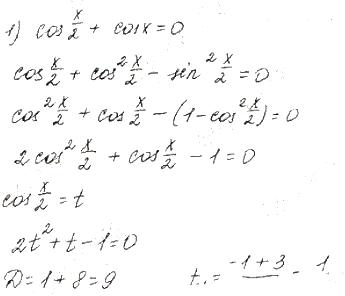 1) cos x/2 + cos x = 0
cos x/2 + cos² x/2 - sin² x/2 = 0
cos² x/2 + cos x/2 - (1 - cos² x/2) = 0
2 cos² x/2 + cos x/2 - 1 = 0
cos x/2 = t
2t² + t - 1 = 0
D = 1 + 8 = 9 t₁ = -1 + 3